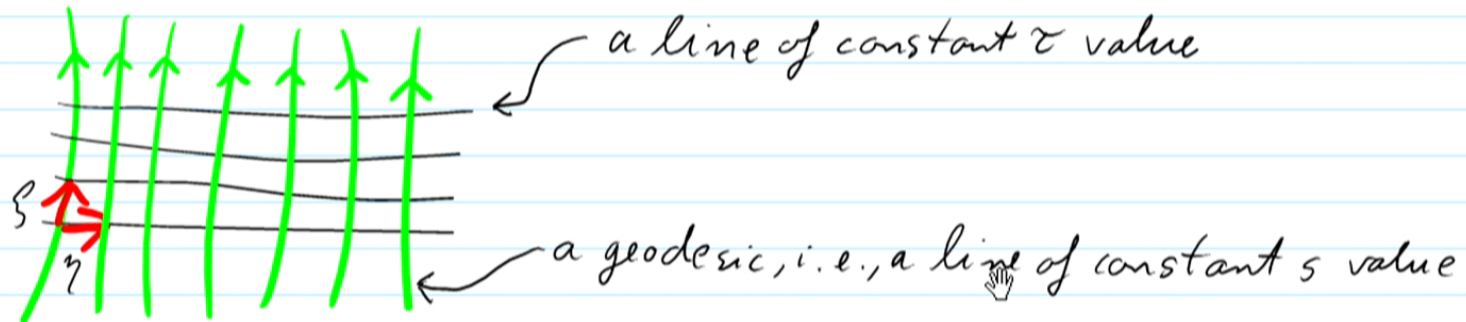 a line of constant τ value
ξ
a geodesic, i.e., a line of constant s value
η